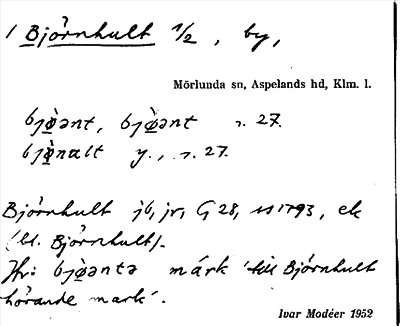 1 Björnhult 1/2, by,
Mörlunda sn, Aspelands hd, Klm. l.
bjø̀ənt, bjø̀ənt r. 27.
bjø̀nalt y., r. 27.
Björnhult jb, jr, G 28, 1793, ek
(bl. Björnhult).
Hr: bjø̀əntə márk 'till Björnhult
hörande mark'.
Ivar Modéer 1952